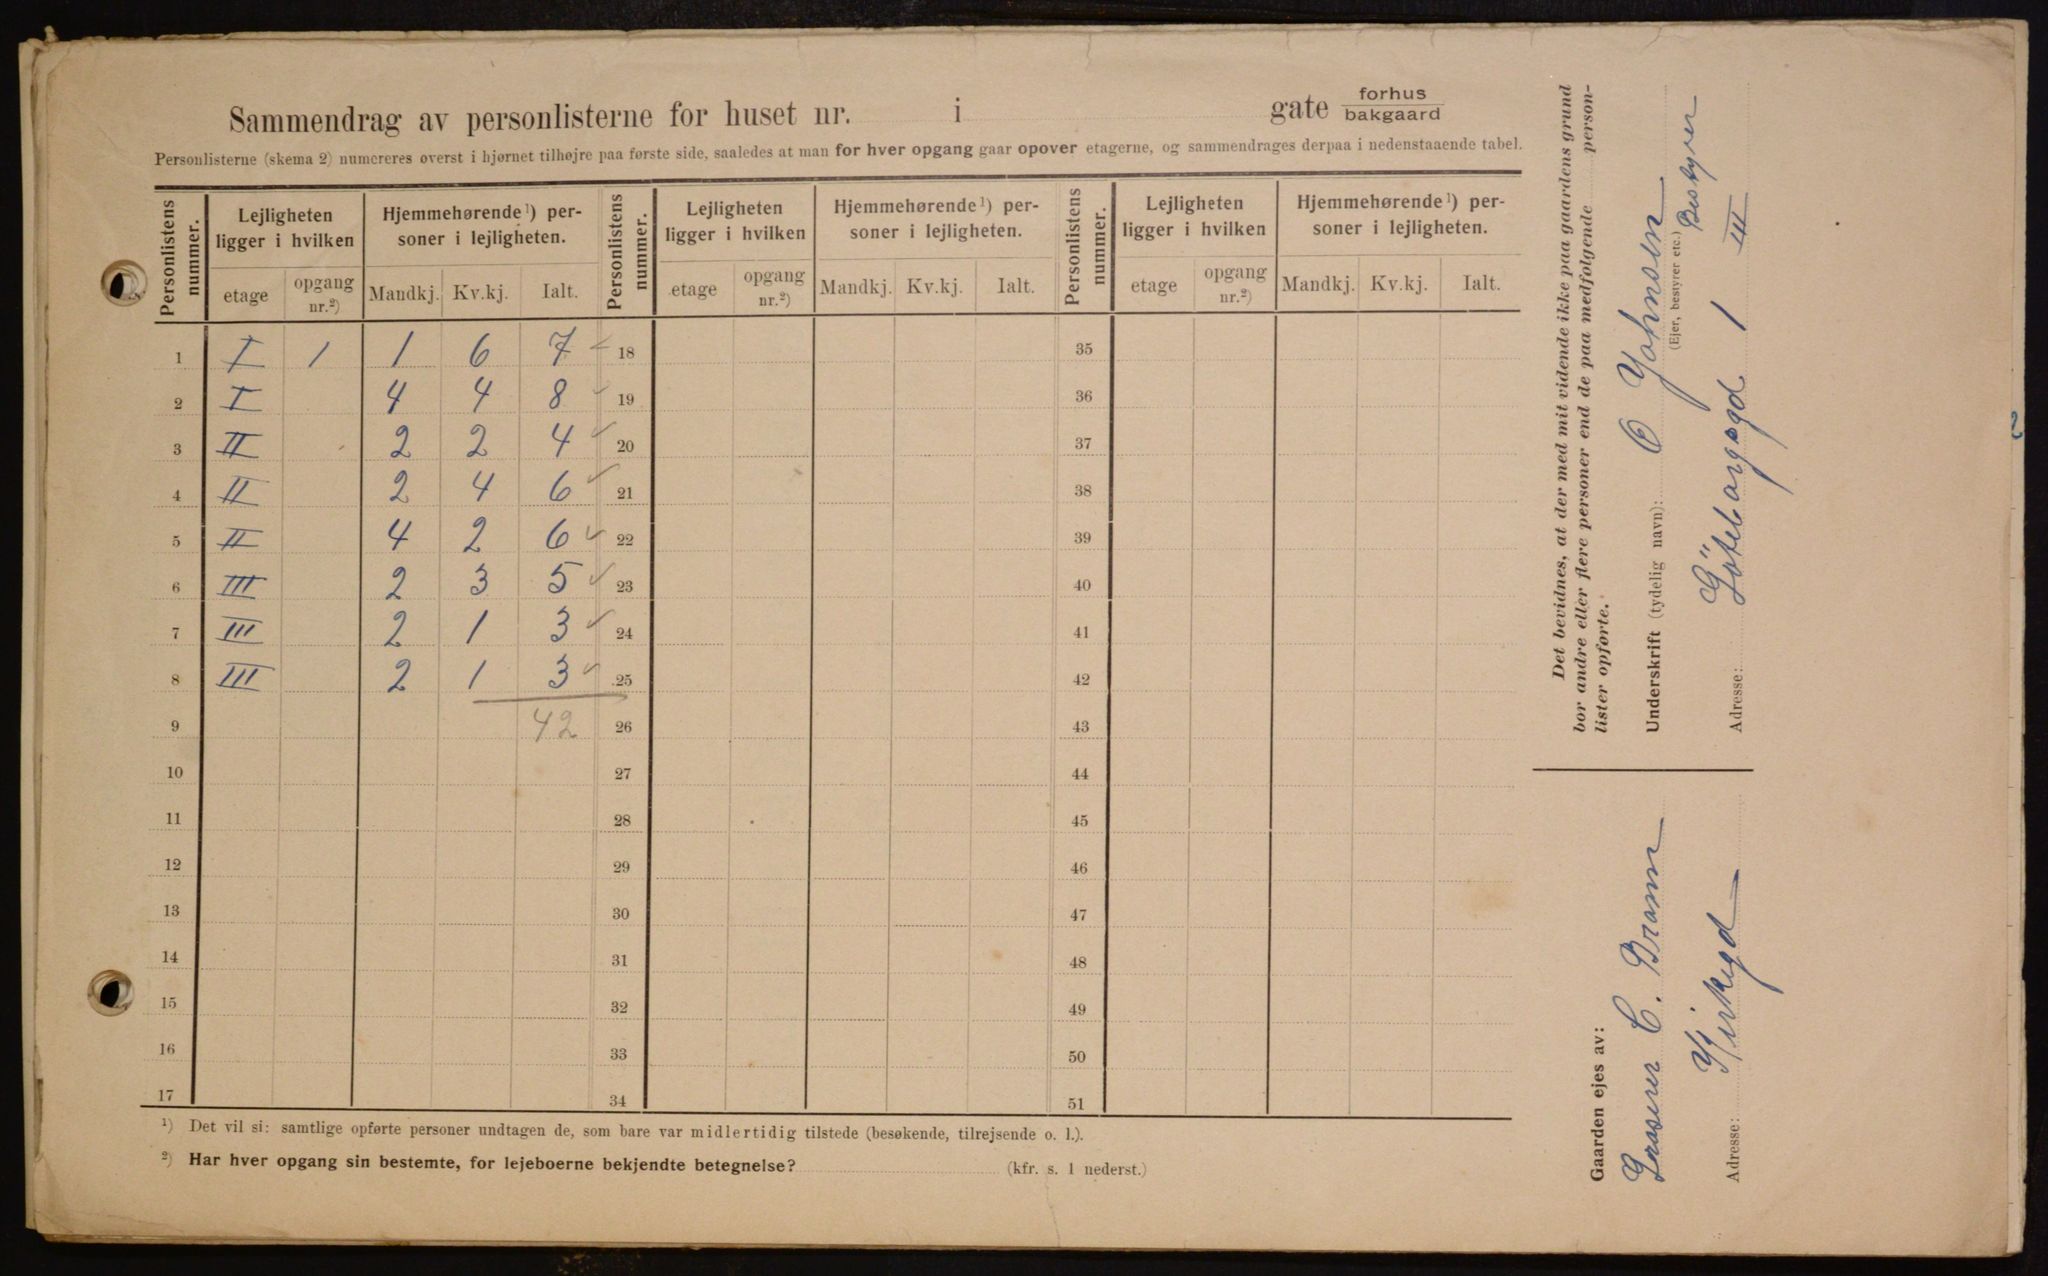 Sammendrag av personlisterne for huset nr. i gate forhus
bakgaard
Personlisterne (skema 2) numereres øverst i hjørnet tilhøjre paa første side, saaledes at man for hver opgang gaar opover etagerne, og sammendrages derpaa i nedenstaaende tabel.
Personlistens nummer. Lejligheten ligger i hvilken Hjemmehørende¹) personer i lejligheten. Personlistens nummer. Lejligheten ligger i hvilken Hjemmehørende¹) personer i lejligheten. Personlistens nummer. Lejligheten ligger i hvilken Hjemmehørende¹) personer i lejligheten.
etage opgang nr.²) Mandkj. Kv.kj. Ialt. etage opgang nr.²) Mandkj. Kv.kj. Ialt. etage opgang nr.²) Mandkj. Kv.kj. Ialt.
1 I 1 1 6 7 18 35
2 I 4 4 8 19 36
3 II 2 2 4 20 37
4 II 2 4 6 21 38
5 II 4 2 6 22 39
6 III 2 3 5 23 40
7 III 2 1 3 24 41
8 III 2 1 3 25 42
9 42 26 43
10 27 44
11 28 45
12 29 46
13 30 47
14 31 48
15 32 49
16 33 50
17 34 51
¹) Det vil si: samtlige opførte personer undtagen de, som bare var midlertidig tilstede (besøkende, tilrejsende o. l.).
²) Har hver opgang sin bestemte, for lejeboerne bekjendte betegnelse? (kfr. s. 1 nederst.)
Det bevidnes, at der med mit vidende ikke paa gaardens grund
bor andre eller flere personer end de paa medfølgende person-
lister opførte.
Underskrift (tydelig navn): O Johnsen
(Ejer, bestyrer etc.) Bestyrer
Adresse: Göteborggd 1 III
Gaarden ejes av:
C. Bramm
Adresse: Kirkegd